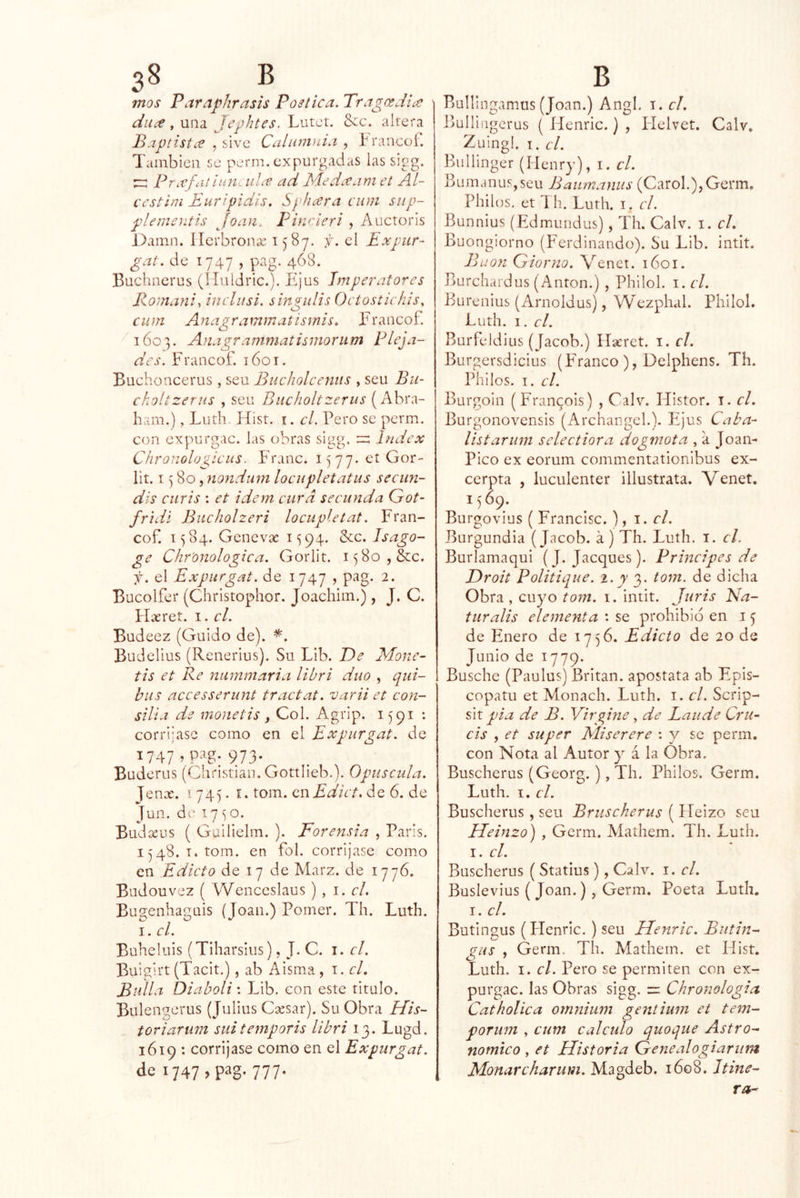 38 B
mos Paraphrasis Poetica. Tragœdiæ
duæ, una Jephtes. Lutet. &c. altera
Baptistæ, sive Calumnia, Francof.
Tambien se perm. expurgadas las sigg.
= Præfatiunculæ ad Medæam et Al-
cestim Euripidis. Sphæra cum sup-
plementis Joan. Pincieri, Auctoris
Damn. Herbronæ 1587. ỹ. el Expur-
gat. de 1747, pag. 468.
Buchnerus (Huldric.). Ejus Imperatores
Romani, inclusi. singulis Octostichis,
cum Anagrammatismis. Francof.
1603. Anagrammatismorum Pleja-
des. Francof. 1601.
Buchoncerus, seu Bucholcenus, seu Bu-
choltzerus, seu Bucholtzerus (Abra-
ham.), Luth. Hist. 1. cl. Pero se perm.
con expurgac. las obras sigg. = Index
Chronologicus. Franc. 1577. et Gor-
lit. 1580, nondum locupletatus secun-
dis curis: et idem curâ secunda Got-
fridi Bucholzeri locupletat. Fran-
cof. 1584. Genevæ 1594. &c. Isago-
ge Chronologica. Gorlit. 1580, &c.
ỹ. el Expurgat. de 1747, pag. 2.
Bucolfer (Christophor. Joachim.), J. C.
Hæret. 1. cl.
Budeez (Guido de). *.
Budelius (Renerius). Su Lib. De Mone-
tis et Re nummaria libri duo, qui-
bus accesserunt tractat. varii et con-
silia de monetis, Col. Agrip. 1591:
corrijase como en el Expurgat. de
1747, pag. 973.
Buderus (Christian. Gottlieb.). Opuscula.
Jenæ. 1745. 1. tom. en Edict. de 6. de
Jun. de 1750.
Budæus (Guilielm.). Forensia, Paris.
1548. 1. tom. en fol. corrijase como
en Edicto de 17 de Marz. de 1776.
Budouvez (Wenceslaus), 1. cl.
Bugenhaguis (Joan.) Pomer. Th. Luth.
1. cl.
Buheluis (Tiharsius), J. C. 1. cl.
Buigirt (Tacit.), ab Aisma, 1. cl.
Bulla Diaboli: Lib. con este titulo.
Bulengerus (Julius Cæsar). Su Obra His-
toriarum sui temporis libri 13. Lugd.
1619: corrijase como en el Expurgat.
de 1747, pag. 777.
B
Bullingamus (Joan.) Angl. 1. cl.
Bullingerus (Henric.), Helvet. Calv.
Zuingl. 1. cl.
Bullinger (Henry), 1. cl.
Bumanus, seu Baumanus (Carol.), Germ.
Philos. et Th. Luth. 1. cl.
Bunnius (Edmundus), Th. Calv. 1. cl.
Buongiorno (Ferdinando). Su Lib. intit.
Buon Giorno. Venet. 1601.
Burchardus (Anton.), Philol. 1. cl.
Burenius (Arnoldus), Wezphal. Philol.
Luth. 1. cl.
Burfeldius (Jacob.) Hæret. 1. cl.
Burgersdicius (Franco), Delphens. Th.
Philos. 1. cl.
Burgoin (François), Calv. Histor. 1. cl.
Burgonovensis (Archangel.). Ejus Caba-
listarum selectiora dogmota, à Joan-
Pico ex eorum commentationibus ex-
cerpta, luculenter illustrata. Venet.
1569.
Burgovius (Francisc.), 1. cl.
Burgundia (Jacob. à) Th. Luth. 1. cl.
Burlamaqui (J. Jacques). Principes de
Droit Politique. 2. y 3. tom. de dicha
Obra, cuyo tom. 1. intit. Juris Na-
turalis elementa: se prohibió en 15
de Enero de 1756. Edicto de 20 de
Junio de 1779.
Busche (Paulus) Britan. apostata ab Epis-
copatu et Monach. Luth. 1. cl. Scrip-
sit pia de B. Virgine, de Laude Cru-
cis, et super Miserere: y se perm.
con Nota al Autor y á la Obra.
Buscherus (Georg.), Th. Philos. Germ.
Luth. 1. cl.
Buscherus, seu Bruscherus (Heizo seu
Heinzo), Germ. Mathem. Th. Luth.
1. cl.
Buscherus (Statius), Calv. 1. cl.
Buslevius (Joan.), Germ. Poeta Luth.
1. cl.
Butingus (Henric.) seu Henric. Butin-
gus, Germ. Th. Mathem. et Hist.
Luth. 1. cl. Pero se permiten con ex-
purgac. las Obras sigg. = Chronologia
Catholica omnium gentium et tem-
porum, cum calculo quoque Astro-
nomico, et Historia Genealogiarum
Monarcharum. Magdeb. 1608. Itine-
ra-